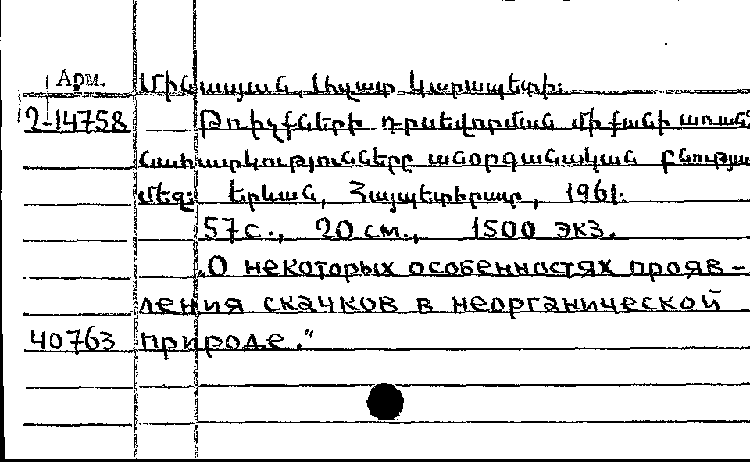 Арм. Մինասյան, Լիպար Կարապետի:
2-14758 Թռիչքների դրսևորման մի քանի առանձ
նահատկությունները անօրգանական բնությա
մեզ: Երևան, Հայպետհրատ, 1961.
57 с., 20 см., 1500 экз.
„О некоторых особенностях прояв-
ления скачков в неорганической
40763 природе."